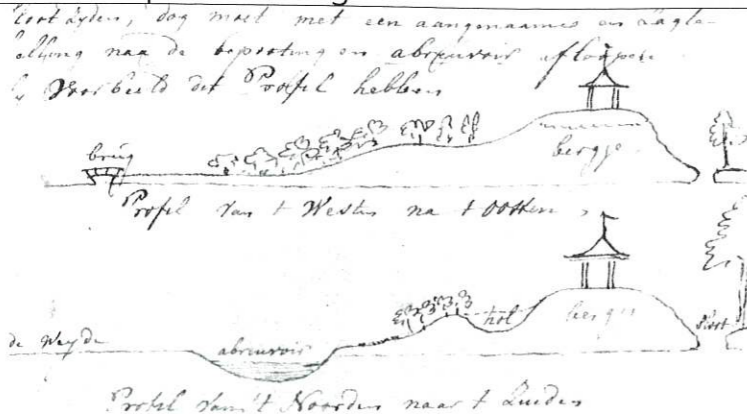 dog moet met een aangenaame en
naa de beplanting en abreuvoir afloopen
Voorbeeld dit Profil hebben
brug
bergje
Profil van t Westen na t Oosten
de Weyde
abreuvoir
hol
bergje
Profil van 't Noorden naar t Zuiden